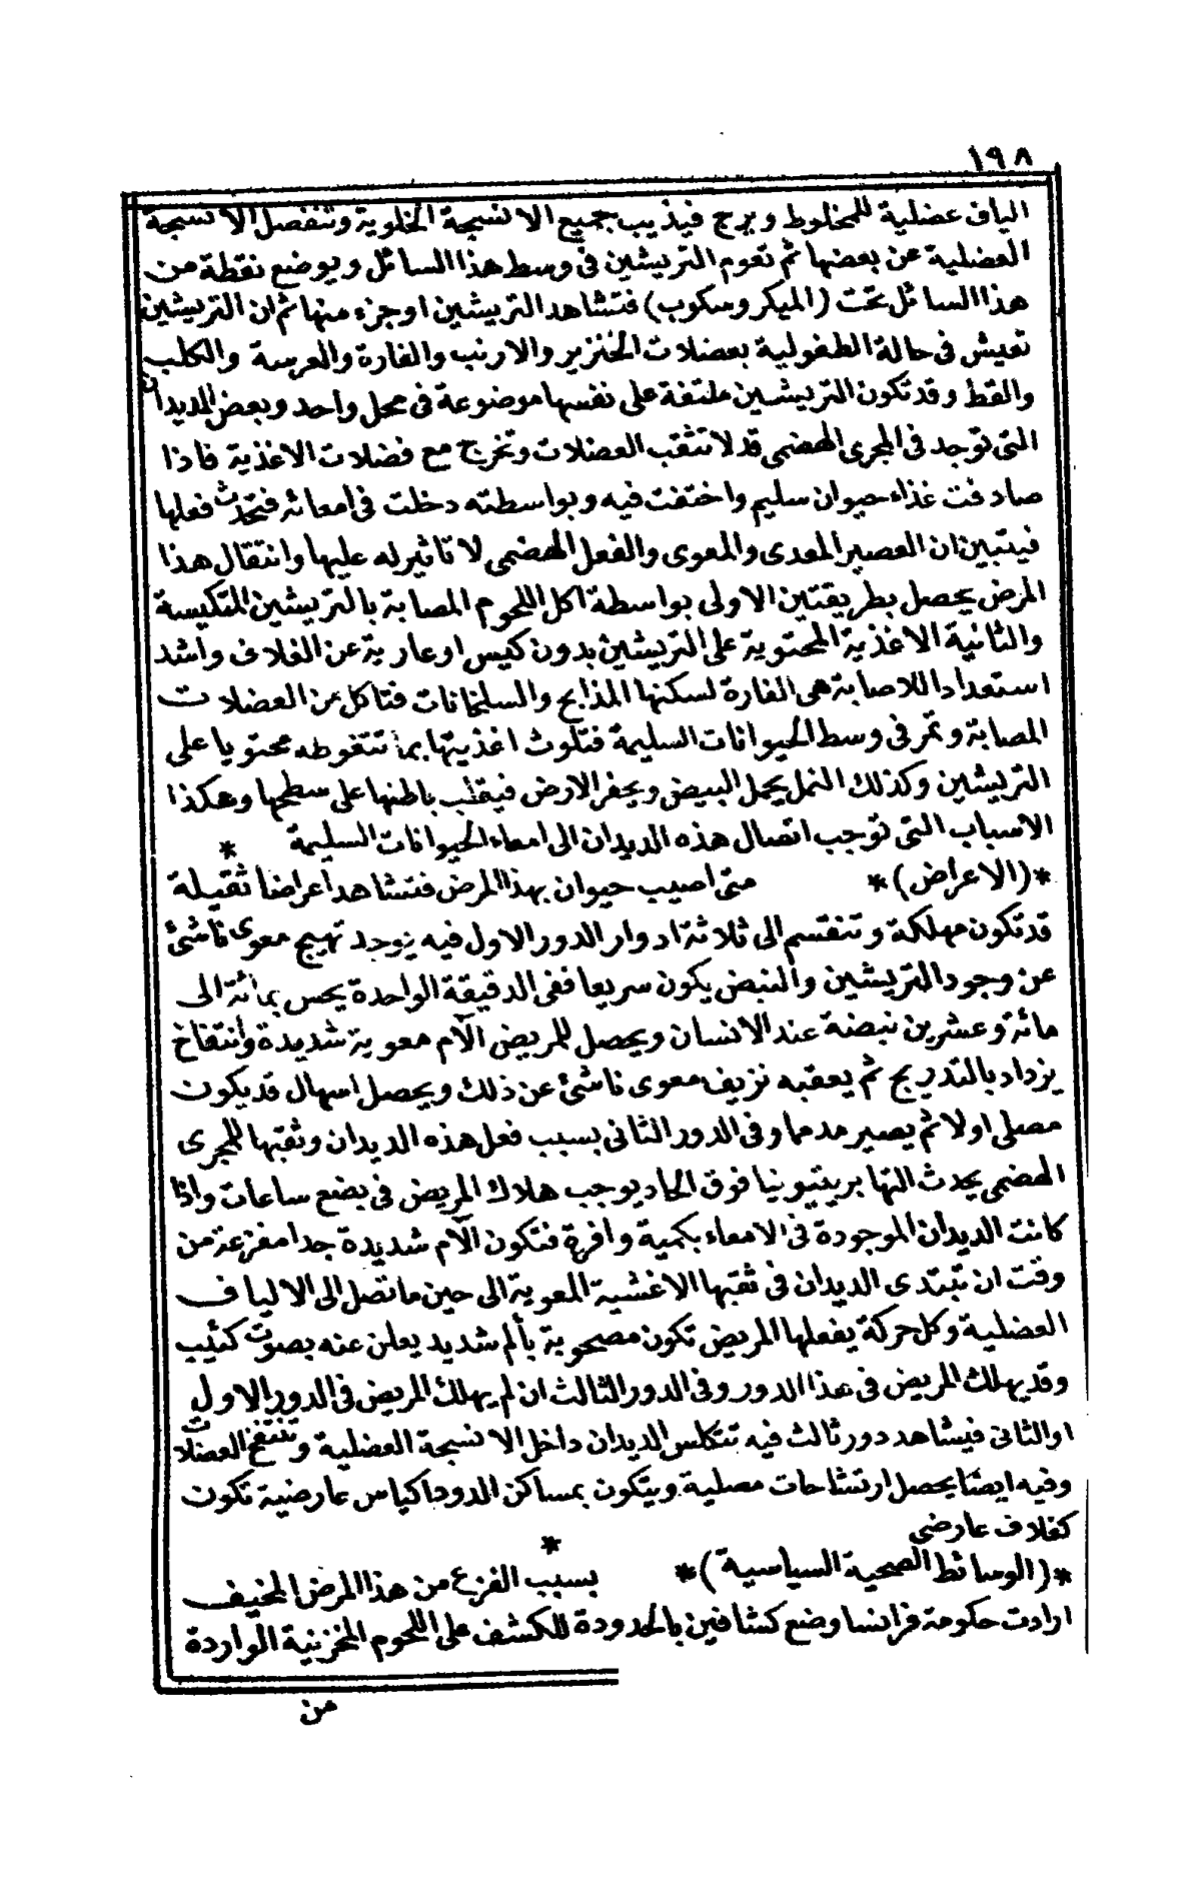 ١٩٨
الياف عضلية للمخلوط ويرج فيذيب جميع الانسجة الخلوية وتنفصل الانسجة
العضلية عن بعضها ثم تعوم التريشين فى وسط هذا السائل ويوضع نقطة من
هذا السائل تحت (الميكروسكوب) فتشاهد التريشين او جزء منها ثم ان التريشين
تعيش فى حالة الطفولية بعضلات الخنزير والارنب والفارة والعرسة والكلب
والقط وقد تكون التريشين ملتفة على نفسها موضوعة فى محل واحد وبعض الديدان
التى توجد فى المجرى الهضمى قد لا تثقب العضلات وتخرج مع فضلات الاغذية فاذا
صادفت غذاء حيوان سليم واختفت فيه وبواسطته دخلت فى امعائه فتحدث فعلها
فيتبين ان العصير المعدى والمعوى والفعل الهضمى لا تاثير له عليها وانتقال هذا
المرض يحصل بطريقتين الاولى بواسطة اكل اللحوم المصابة بالتريشين المتكيسة
والثانية الاغذية المحتوية على التريشين بدون كيس او عارية عن الغلاف واشد
استعدادا للاصابة هى الفارة لسكنها المذابح والسلخانات فتاكل من العضلات
المصابة وتمر فى وسط الحيوانات السليمة فتلوث اغذيتها بما تتغوطه محتويا على
التريشين وكذلك النمل يحمل البيض ويحفر الارض فيقلب باطنها على سطحها وهكذا
الاسباب التى توجب اتصال هذه الديدان الى امعاء الحيوانات السليمة *
*(الاعراض)* متى اصيب حيوان بهذا المرض فتشاهد اعراضا ثقيلة
قد تكون مهلكة وتنقسم الى ثلاثة ادوار الدور الاول فيه يوجد تهيج معوى ناشئ
عن وجود التريشين والنبض يكون سريعا ففى الدقيقة الواحدة يحس بمائة الى
مائة وعشرين نبضة عند الانسان ويحصل للمريض آلام معوية شديدة وانتفاخ
يزداد بالتدريج ثم يعقبه نزيف معوى ناشئ عن ذلك ويحصل اسهال قد يكون
مصلى اولا ثم يصير مدمما وفى الدور الثانى بسبب فعل هذه الديدان وثقبها للمجرى
الهضمى يحدث التهابا بريتيونيا فوق الحاد يوجب هلاك المريض فى بضع ساعات واذا
كانت الديدان الموجودة فى الامعاء بكمية وافرة فتكون الآم شديدة جدا مفزعة من
وقت ان تبتدى الديدان فى ثقبها الاغشية المعوية الى حين ما تصل الى الالياف
العضلية وكل حركة يفعلها المريض تكون مصحوبة بألم شديد يعلن عنه بصوت كئيب
وقد يهلك المريض فى هذا الدور وفى الدور الثالث ان لم يهلك المريض فى الدور الاول
او الثانى فيشاهد دور ثالث فيه تتكلس الديدان داخل الانسجة العضلية وتنتفخ العضلات
وفيه ايضا يحصل ارتشاحات مصلية ويتكون بمساكن الدود اكياس عارضية تكون
كغلاف عارضى *
*(الوسائط الصحية السياسية)* بسبب الفزع من هذا المرض المخيف
ارادت حكومة فرانسا وضع كشافين بالحدودة للكشف على اللحوم الخنزيرية الواردة
من